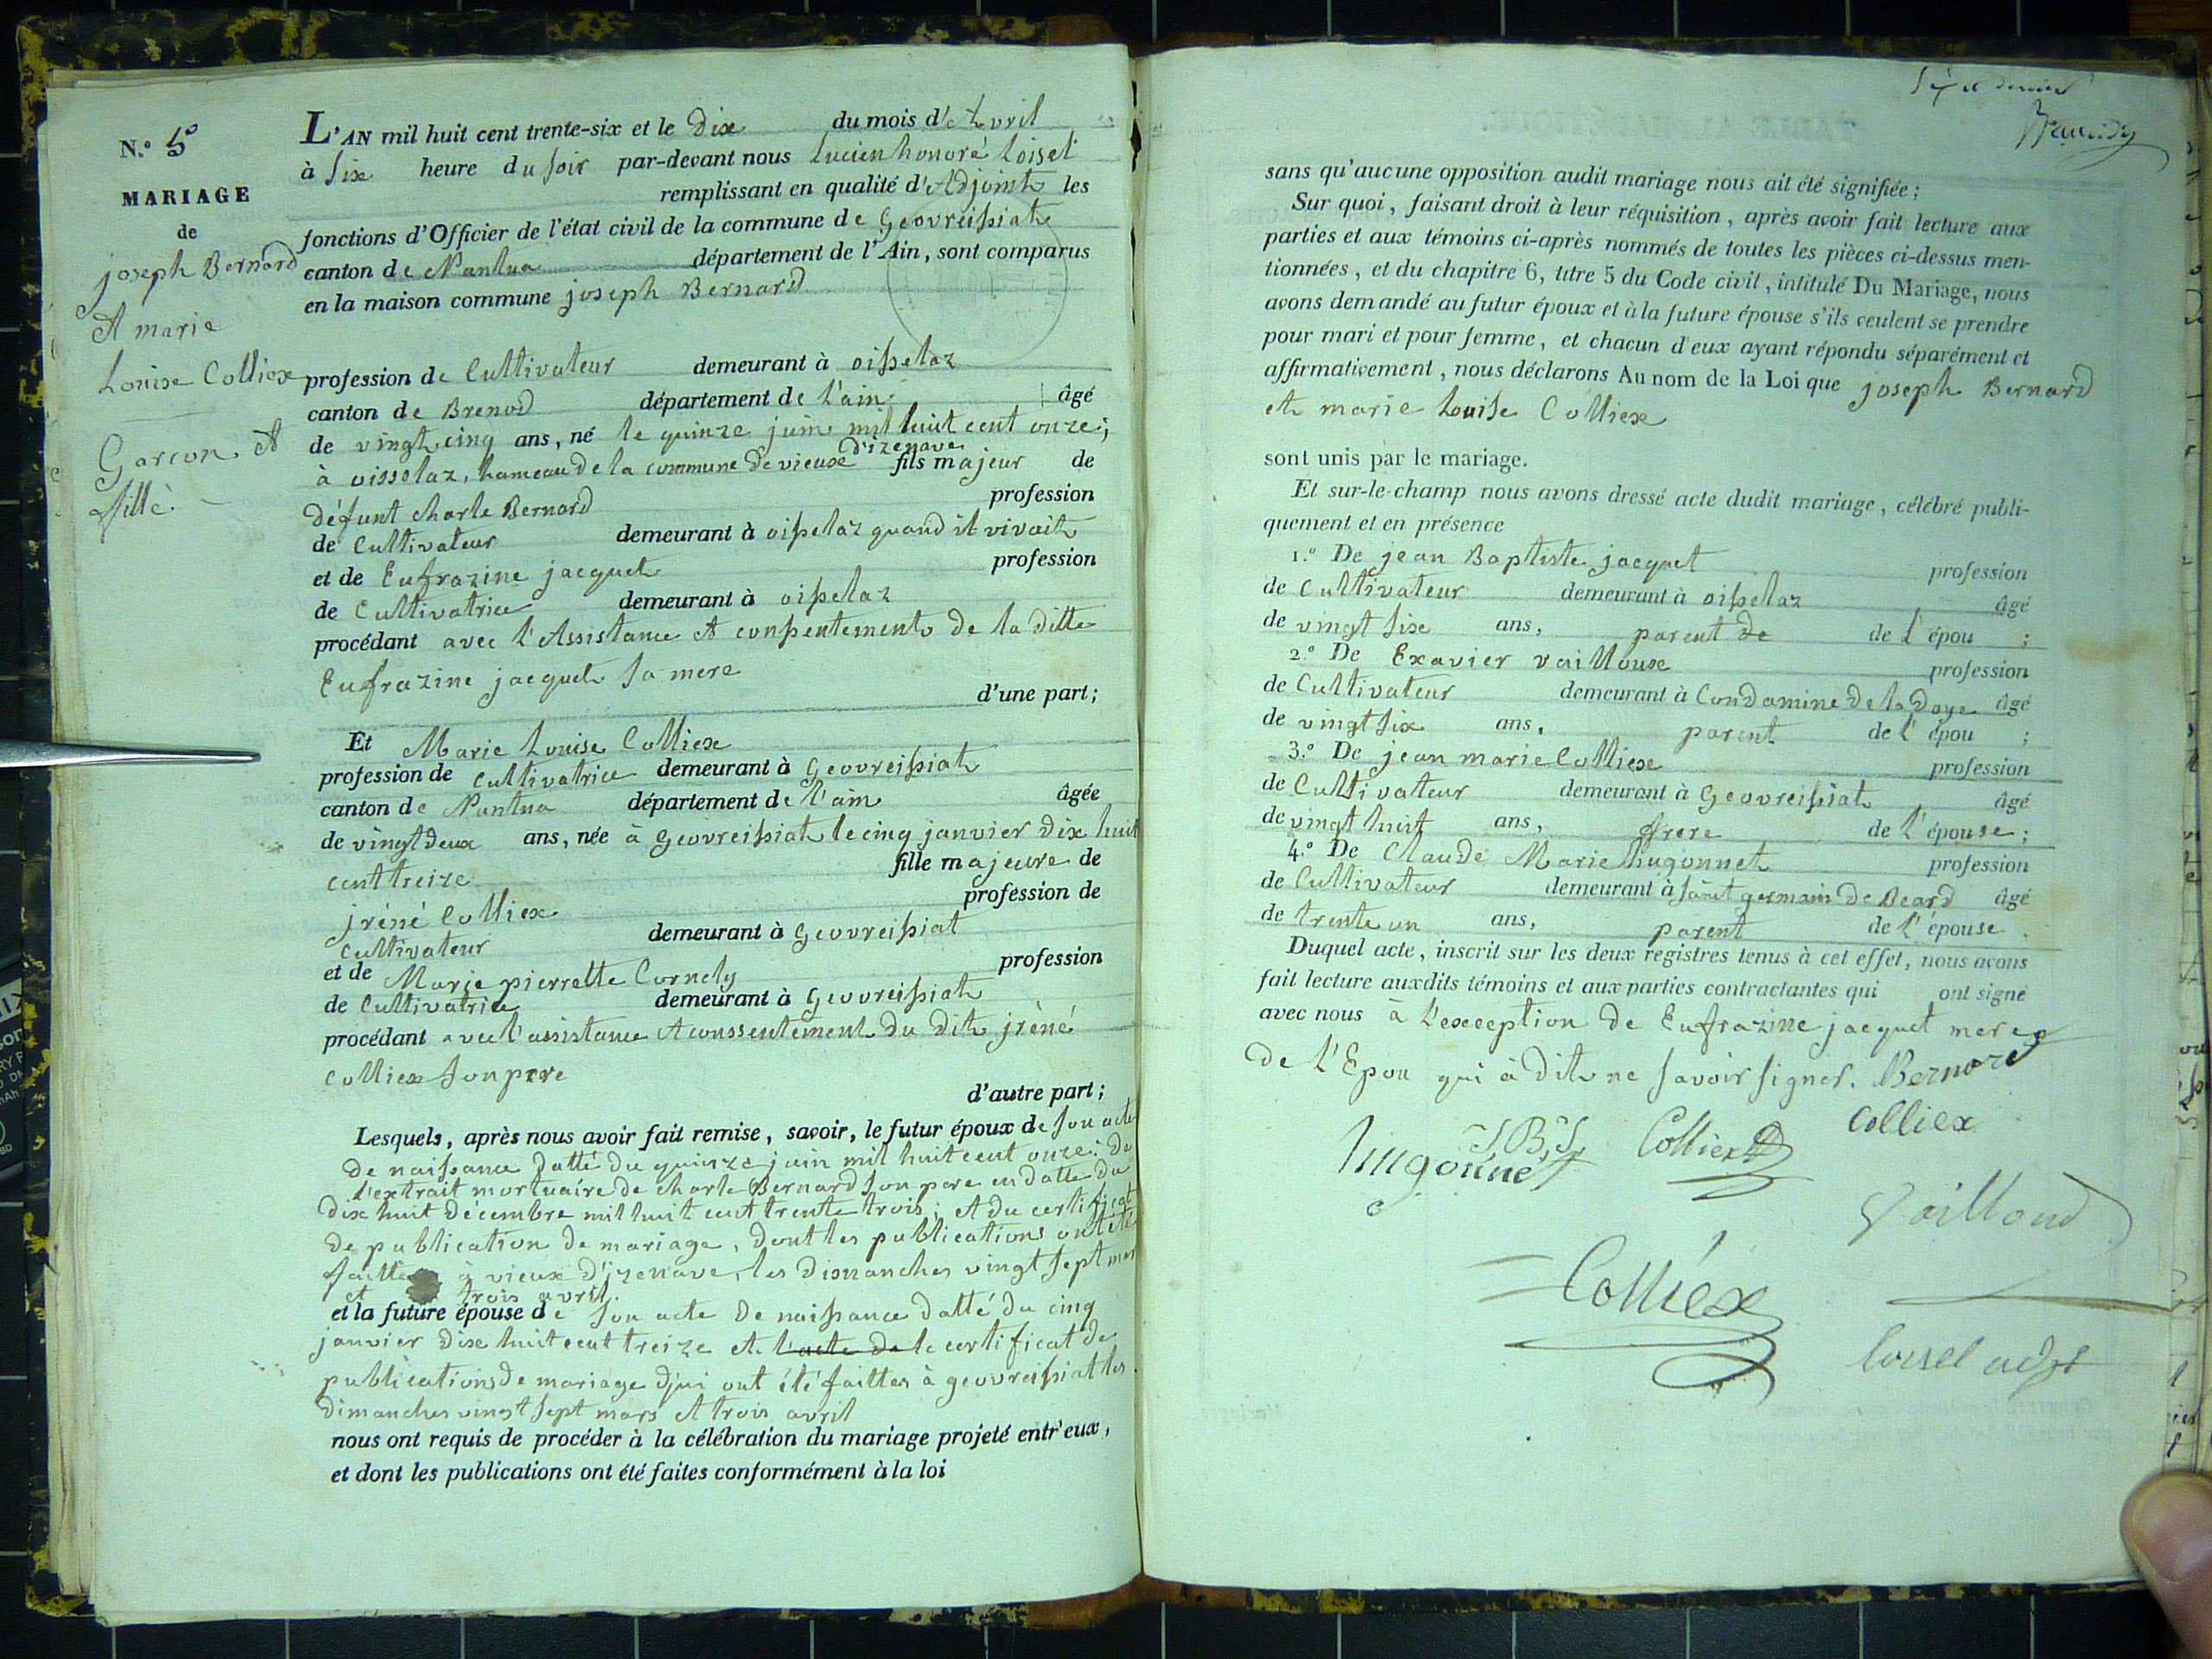 N.º 5º
MARIAGE
de
joseph Bernard
et marie
Louise Colliex
Garcon et
fille.
L'AN mil huit cent trente-six et le Dix du mois d'Avril
à six heure du soir par-devant nous Lucien honoré Loisel
remplissant en qualité d'Adjoint les
fonctions d'Officier de l'état civil de la commune de Geovreissiat
canton de Nantua département de l'Ain, sont comparus
en la maison commune joseph Bernard
profession de Cultivateur demeurant à oisselaz
canton de Brenod département de L'ain âgé
de vingt cinq ans, né le quinze juin mil huit cent onze;
d'izenave
à oisselaz, hameau de la commune de vieux fils majeur de
défunt charle Bernard profession
de Cultivateur demeurant à oisselaz quand il vivait
et de Eufrazine jacquet profession
de Cultivatrice demeurant à oisselaz
procédant avec l'Assistance et consentement de la ditte
Eufrazine jacquet sa mere
d'une part;
Et Marie Louise Colliex
profession de cultivatrice demeurant à Geovreissiat
canton de Nantua département de l'ain âgée
de vingt deux ans, née à geovreissiat le cinq janvier dix huit
cent treize fille majeure de
jréné Colliex profession de
Cultivateur demeurant à Geovreissiat
et de Marie pierrette Cornely profession
de Cultivatrice demeurant à Geovreissiat
procédant avec l'assistance et conssentement du dit jréné
Colliex son pere
d'autre part;
Lesquels, après nous avoir fait remise, savoir, le futur époux de son acte
de naissance datté du quinze juin mil huit cent onze; de
l'extrait mortuaire de charle Bernard son pere en datte du
dix huit décembre mil huit cent trente trois; et du certificat
de publication de mariage, dont les publications ont été
faittes à vieux d'jzenave, les dimanches vingt sept mars
et trois avril.
et la future épouse de son acte de naissance datté du cinq
janvier dix huit cent treize et l'acte de le certificat de
publications de mariage qui ont été faittes à geovreissiat les
dimanches vingt sept mars et trois avril
nous ont requis de procéder à la célébration du mariage projeté entr'eux,
et dont les publications ont été faites conformément à la loi
sans qu'aucune opposition audit mariage nous ait été signifiée;
Sur quoi, faisant droit à leur réquisition, après avoir fait lecture aux
parties et aux témoins ci-après nommés de toutes les pièces ci-dessus men-
tionnées, et du chapitre 6, titre 5 du Code civil, intitulé Du Mariage, nous
avons demandé au futur époux et à la future épouse s'ils veulent se prendre
pour mari et pour femme, et chacun d'eux ayant répondu séparément et
affirmativement, nous déclarons Au nom de la Loi que joseph Bernard
et marie Louise Colliex
sont unis par le mariage.
Et sur-le-champ nous avons dressé acte dudit mariage, célébré publi-
quement et en présence
1.º De jean Baptiste jacquet profession
de Cultivateur demeurant à oisselaz âgé
de vingt six ans, parent de de l'épou ;
2.º De Exavier vailloux profession
de Cultivateur demeurant à Condamine de la Doye âgé
de vingt six ans, parent de l'épou ;
3.º De jean marie Colliex profession
de Cultivateur demeurant à Geovreissiat âgé
de vingt huit ans, frere de l'épouse;
4.º De Claude Marie hugonnet profession
de Cultivateur demeurant à saint germain de Beard âgé
de trente un ans, parent de l'épouse.
Duquel acte, inscrit sur les deux registres tenus à cet effet, nous avons
fait lecture auxdits témoins et aux parties contractantes qui ont signé
avec nous à l'exception de Eufrazine jacquet mere
de l'Epou qui à dit ne savoir signer. Bernard
J.B.J. Colliex Colliex
hugonnet
Vailloud
Colliex
Loisel adjt